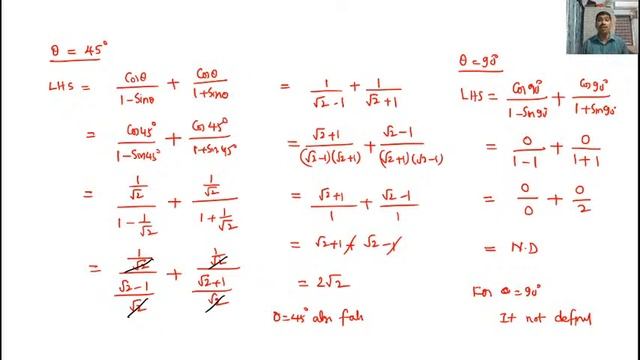 θ = 45°
LHS = Cosθ/(1-Sinθ) + Cosθ/(1+Sinθ)
= Cos45°/(1-Sin45°) + Cos45°/(1+Sin45°)
= (1/√2)/(1-1/√2) + (1/√2)/(1+1/√2)
= (1/√2)/((√2-1)/√2) + (1/√2)/((√2+1)/√2)
= 1/(√2-1) + 1/(√2+1)
= (√2+1)/((√2-1)(√2+1)) + (√2-1)/((√2+1)(√2-1))
= (√2+1)/1 + (√2-1)/1
= √2+1+√2-1
= 2√2
θ=45° also fals
θ=90°
LHS = Cos90°/(1-Sin90°) + Cos90°/(1+Sin90°)
= 0/(1-1) + 0/(1+1)
= 0/0 + 0/2
= N.D
For θ=90°
It not